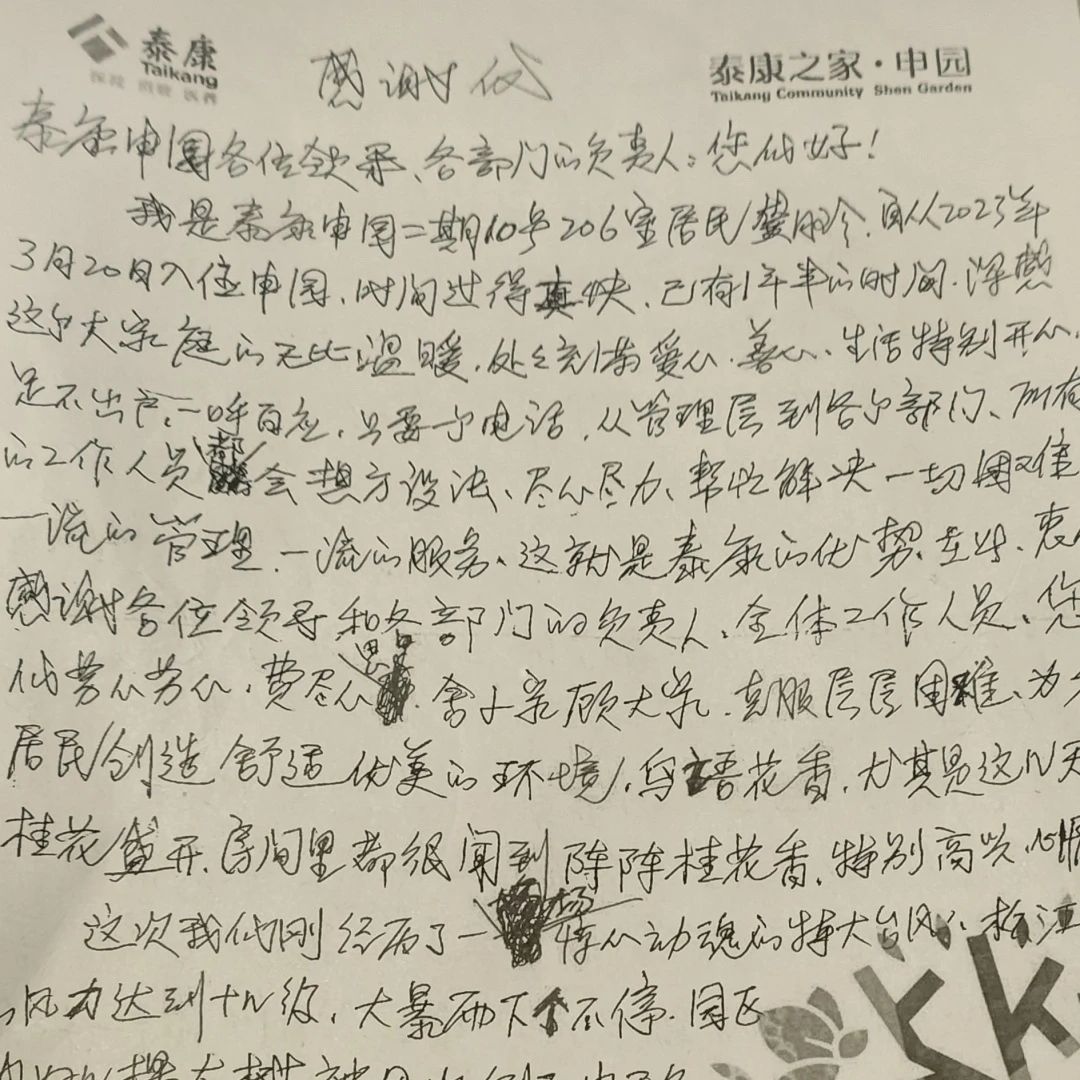 泰康
Taikang
泰康之家·申园
Taikang Community Shen Garden
感谢信
泰康申园各位领导、各部门的负责人：您们好！
我是泰康申园二期10号206室居民，自从2023年
3月20日入住申园，时间过得真快，已有1年半的时间，深感
这个大家庭的无比温暖，处处充满爱心、善心、生活特别开心，
足不出户，一呼百应，只要一个电话，从管理层到各个部门、所有
的工作人员都会想方设法、尽心尽力、帮忙解决一切困难
一流的管理，一流的服务、这就是泰康的优势，在此、衷心
感谢各位领导和各部门的负责人、全体工作人员、您
们劳心劳心，费尽心思，舍小家顾大家，克服层层困难、为
居民创造舒适优美的环境，鸟语花香，尤其是这几天
桂花盛开，房间里都很闻到阵阵桂花香，特别高兴，心情
这次我们刚经历了一场惊心动魂的特大台风，松江
风力达到十几级，大暴雨下个不停，园区
棵大树被